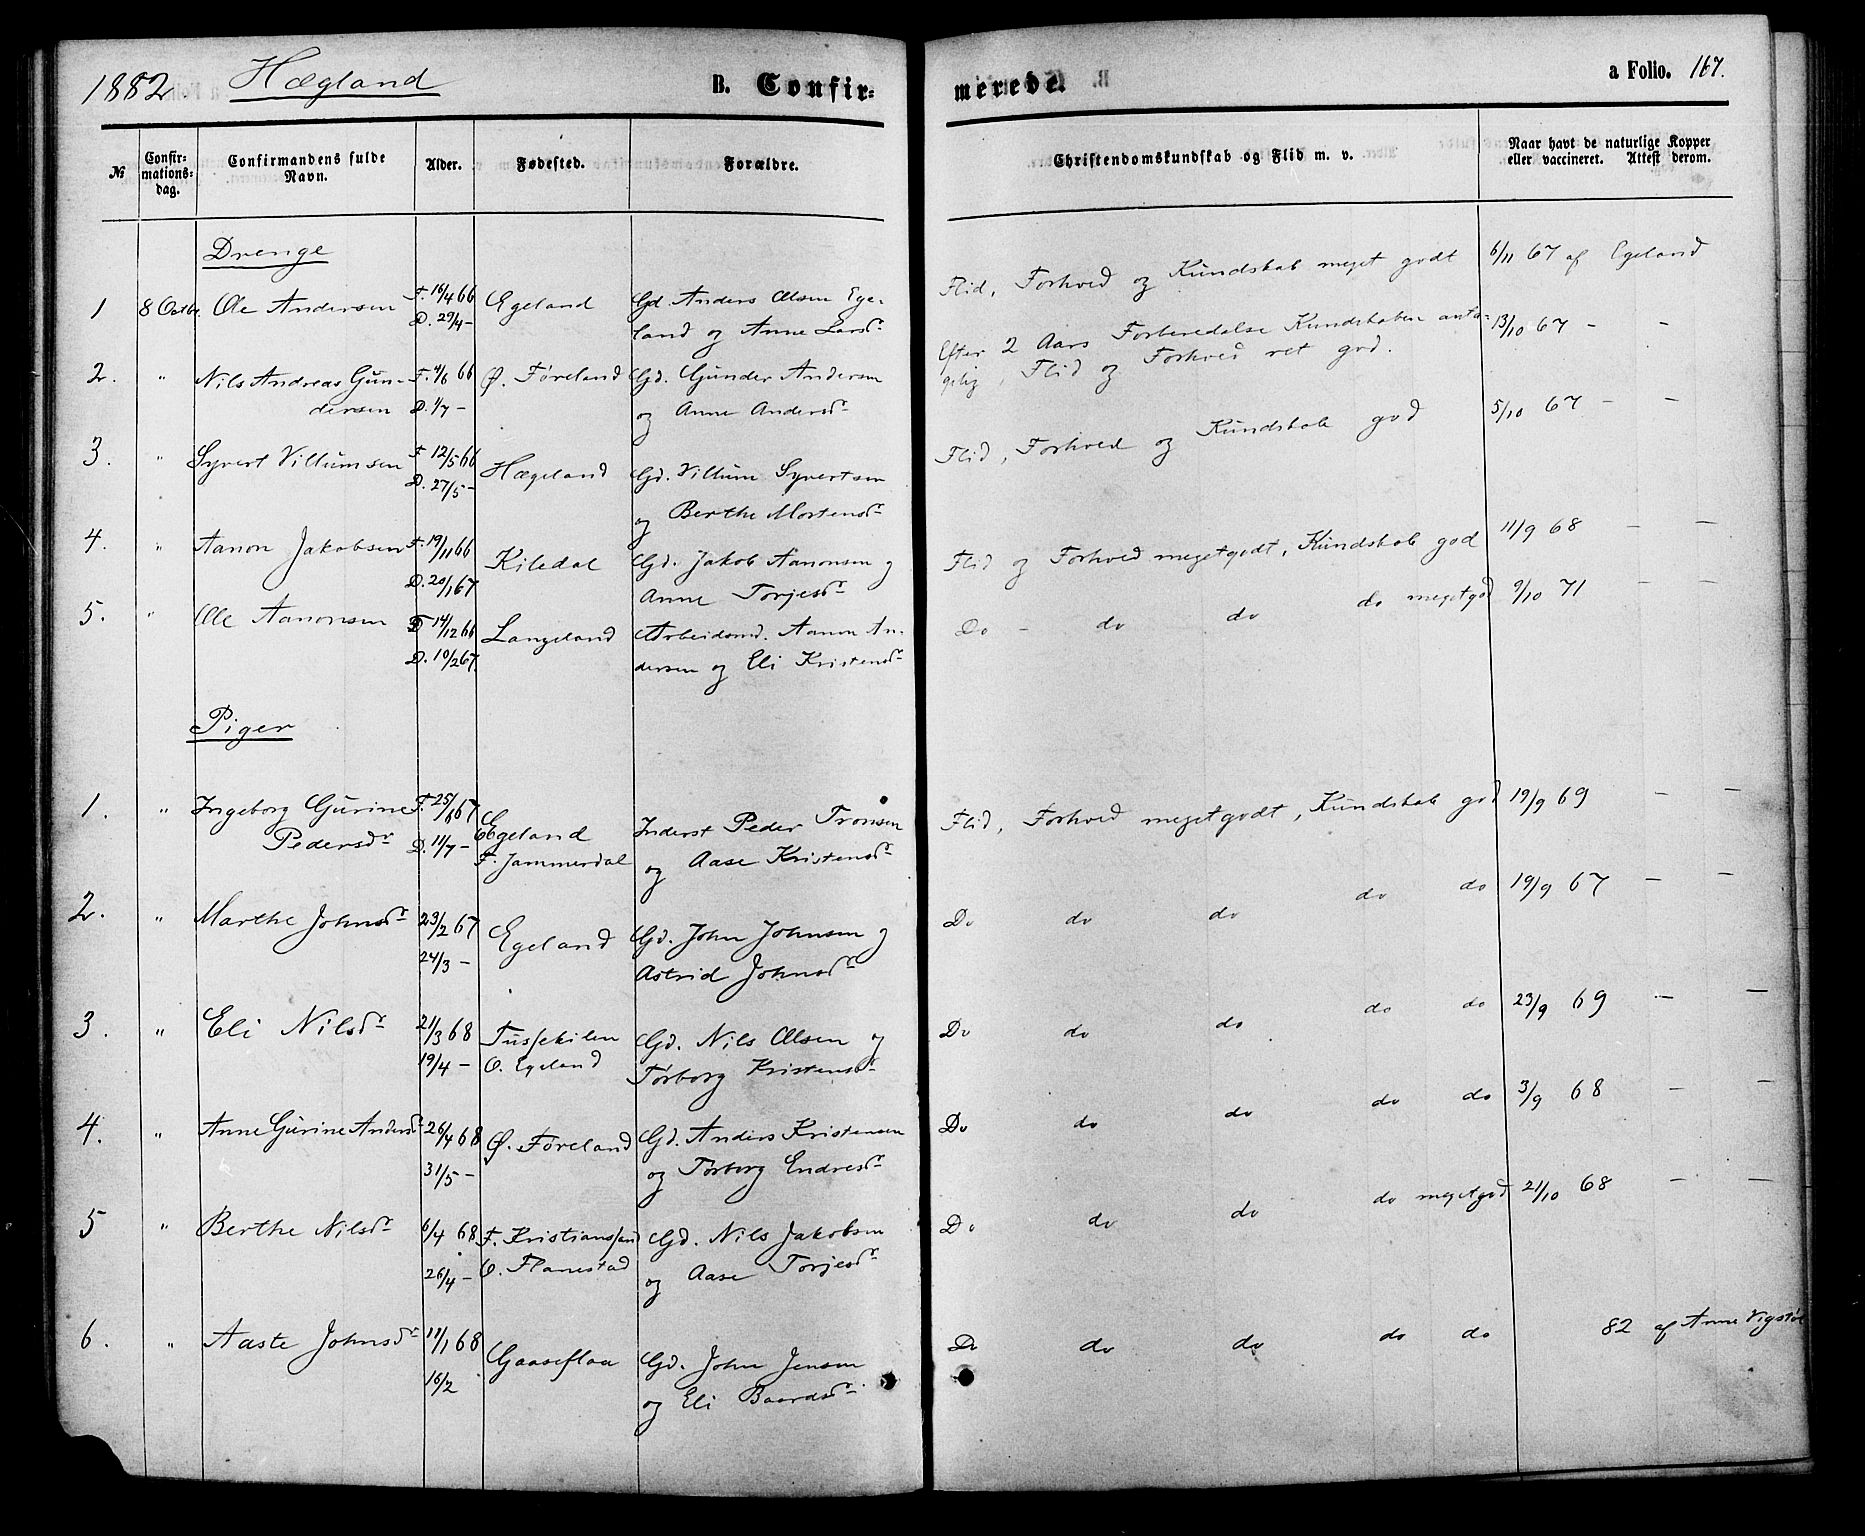 1882 Hægland B. Confir-
merede. a Folio. 167.
№ Confir-
mations-
dag. Confirmandens fulde
Navn. Alder. Fødested. Forældre.
Christendomskundskab og Flid m. v. Naar havt de naturlige Kopper
eller vaccineret. Attest derom.
Drenge
1 8 Octbr. Ole Andersen F. 16/4 66 Egeland Gd. Anders Olsen Ege- Flid, Forhold og Kundskab meget godt 6/11 67 af Egeland
D. 29/4 – land og Anne Larsdr
2. " Nils Andreas Gun- F. 4/6 66 Ø. Føreland Gd. Gunder Andersen Efter 2 Aars Forberedelse Kundskaben anta- 13/10 67 – –
dersen D. 1/7 – og Anne Andersdr gelig, Flid og Forhold ret god.
3. " Syvert Villumsen F. 12/5 66 Hægeland Gd. Villum Syvertsen Flid, Forhold og Kundskab god 5/10 67 – –
D. 27/5 – og Berthe Mortensdr
4. " Aanon Jakobsen F. 19/11 66 Kiledal Gd. Jakob Aanonsen og Flid og Forhold meget godt, Kundskab god 11/9 68 – –
D. 20/1 67 Anne Torjesdr
5. " Ole Aanonsen F. 14/12 66 Langeland Arbeidsmd. Aanon An- Do – do do do meget god 9/10 71 – –
D. 10/2 67 dersen og Eli Kristensdr
Piger
1. " Ingeborg Gurine F. 25/6 67 Egeland Inderst Peder Tronsen Flid, Forhold meget godt, Kundskab god 19/9 69 – –
Pedersdr D. 11/7 – F. Jammerdal og Aase Kristensdr
2. " Marthe Johnsdr 23/2 67 Egeland Gd. John Johnsen og Do do do do do 19/9 67 – –
24/3 – Astrid Johnsdr
3. " Eli Nilsdr 21/3 68 Tussekilen Gd. Nils Olsen og Do do do do do 23/9 69 – –
19/4 – O. Egeland Tørborg Kristensdr
4. " Anne Gurine Andersdr 26/4 68 Ø. Føreland Gd. Anders Kristensen Do do do do do 3/9 68 – –
31/5 – og Tørborg Endresdr
5 " Berthe Nilsdr 6/4 68 F. Kristianssand Gd. Nils Jakobsen Do do do do meget god 21/10 68 – –
26/4 – O. Flanestad og Aase Torjesdr
6. " Aaste Johnsdr 11/1 68 Gaaseflaa Gd. John Jensen Do do do do do 82 af Anne Vigstøl
16/2 og Eli Baardsdr